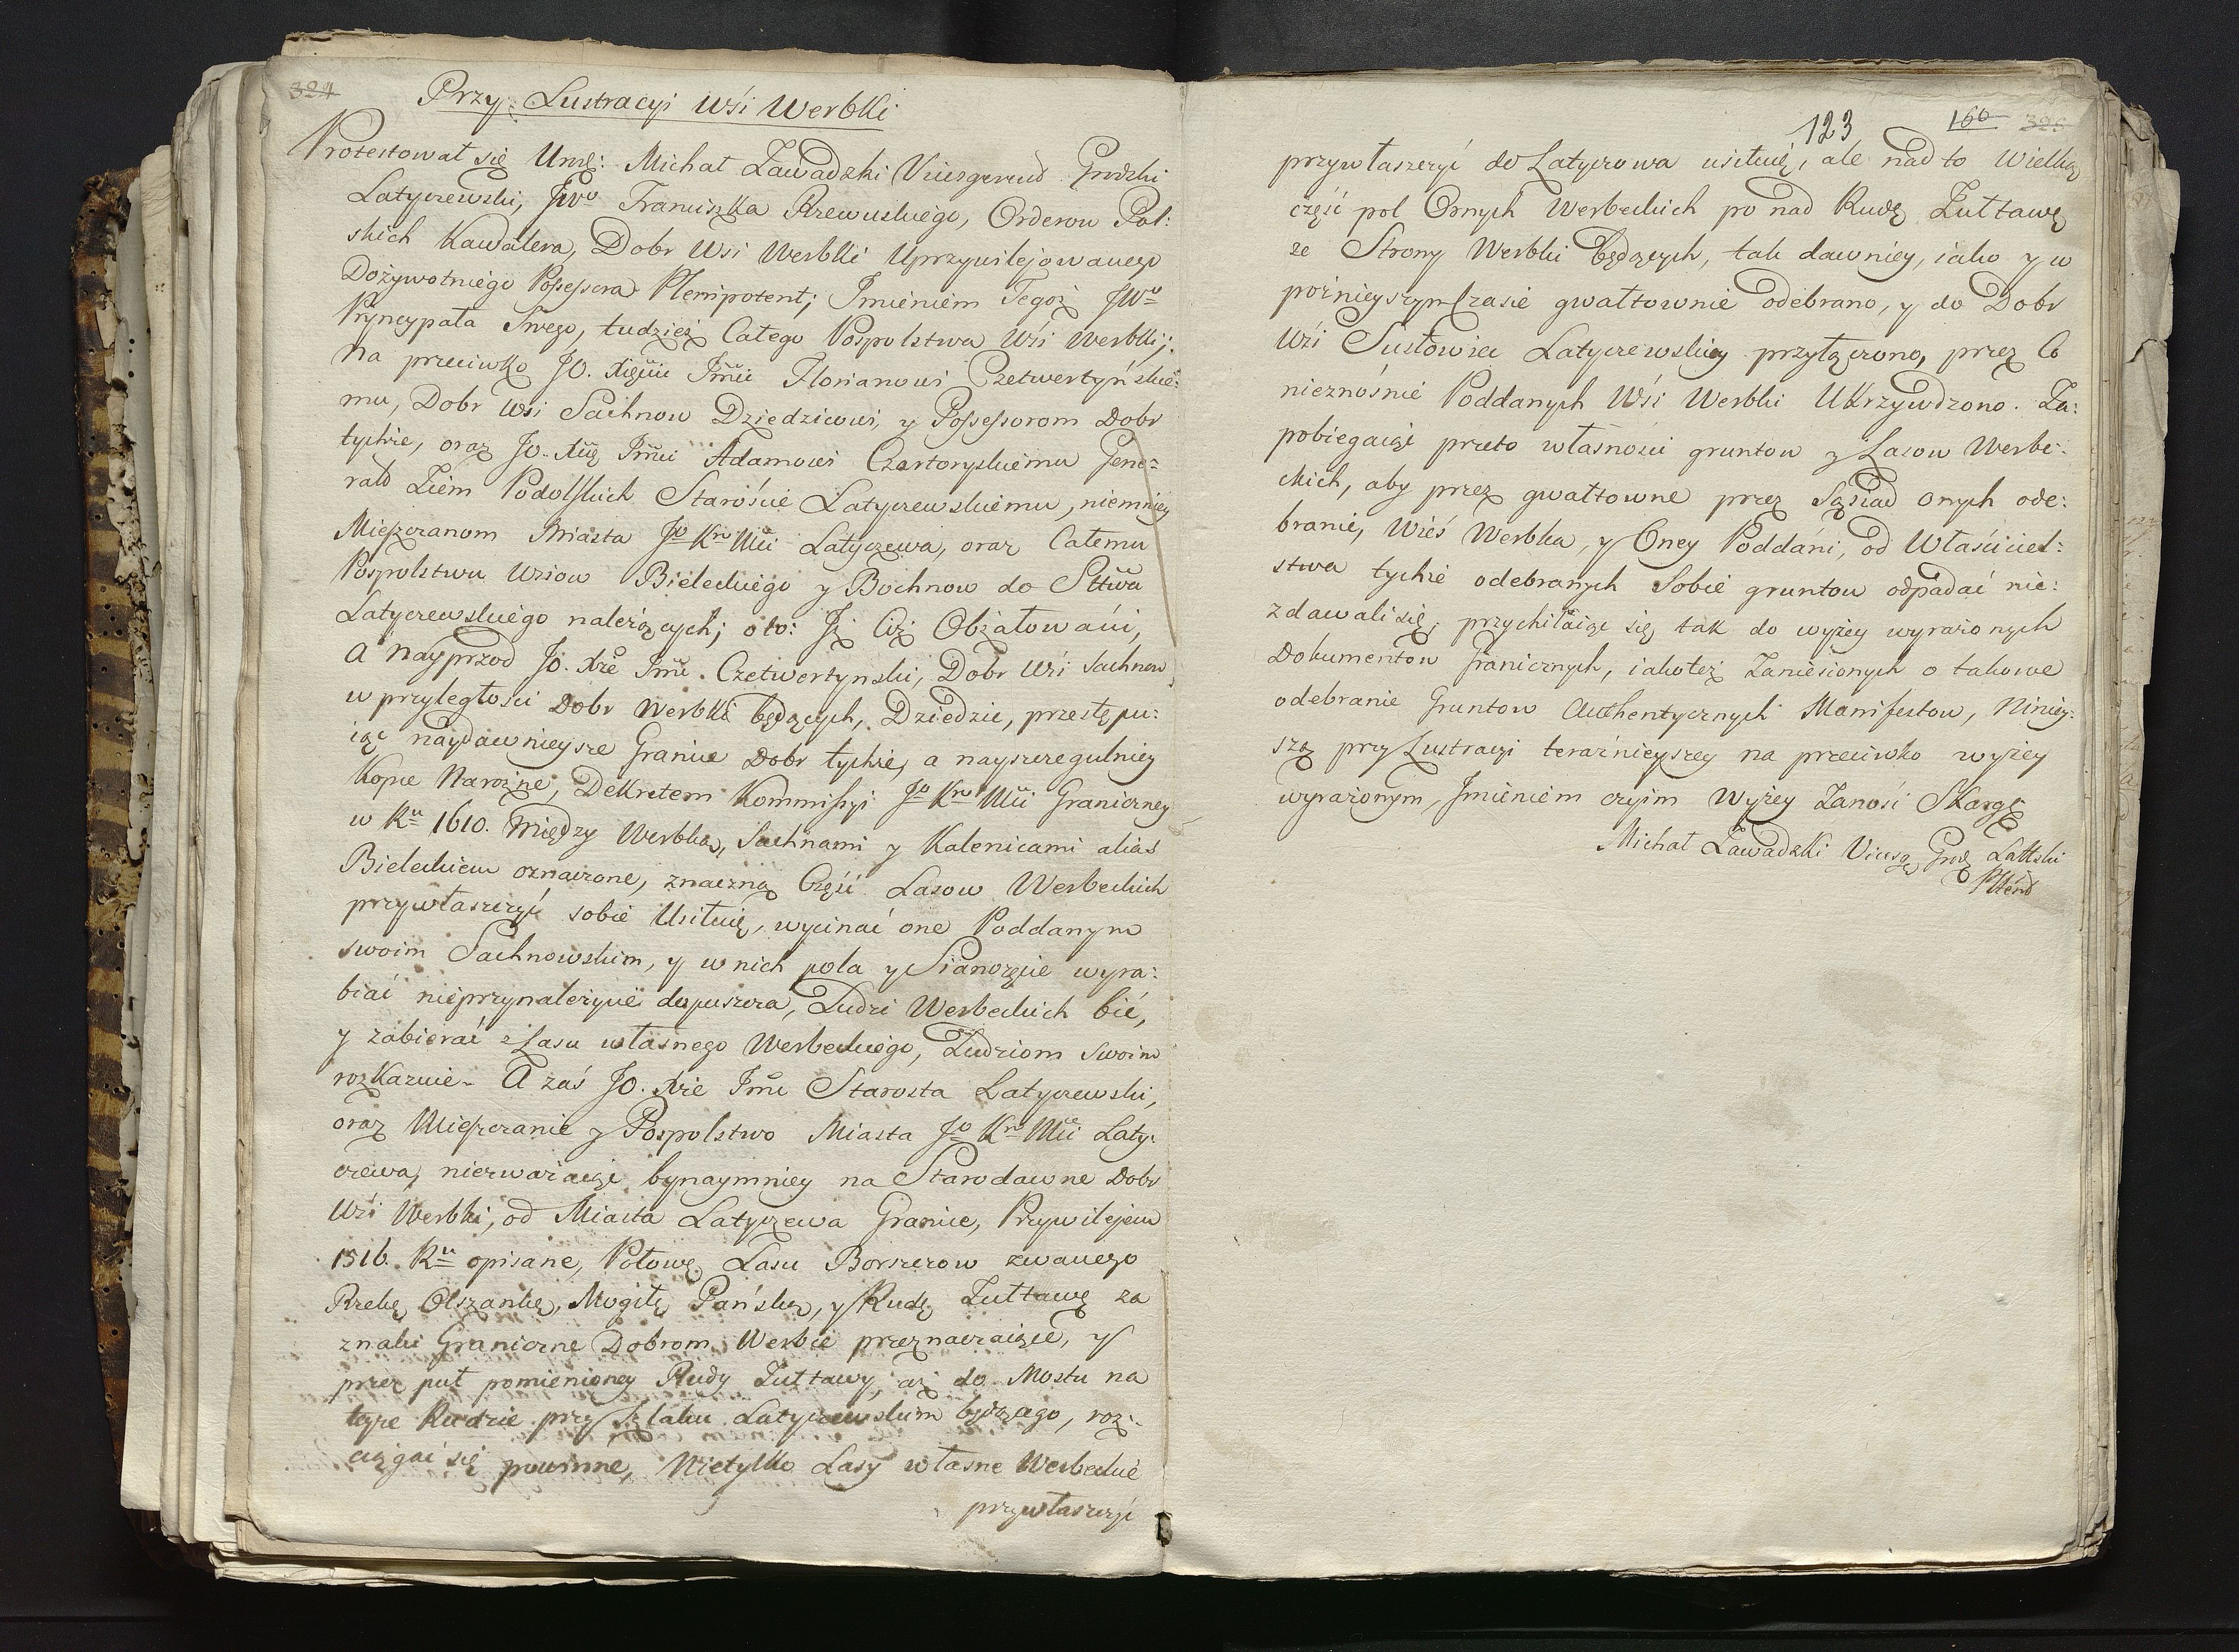 324
Przy Lustracyi Wśi Werbki
Protestował się Urzę: Michał Zawadzki Vicesgerend Grodzki
Latyczewski, JWo Franciszka Rzewuskiego, Orderow Pol:
skich Kawalera, Dobr Wsi Werbki Uprzywilejowanego
Dożywotniego Possessora Plenipotent; Imieniem Tegoż JWo
Pryncypała Swego, tudzież Całego Pospolstwa Wśi Werbki;
na przeciwko JO. Xięciu Imci Floryanowi Czetwertyńskie:
mu, Dobr Wsi Sachnow Dziedzicowi, y Possessorom Dobr
tychże, oraz Jo. Xcię Imci Adamowi Czartoryskiemu Gene:
rało Ziem Podolskich Starościé Latyczewskiemu, niemniey
Mieszczanom Miasta Jo Kro Mci Latyczewa, oraz Całemu
Pospolstwu Wsiow Bieleckiego y Bochnow do Sttwa
Latyczewskiego należących; oto: Iż Ciż Obżałowani,
a nayprzod Jo. Xże Imć. Czetwertynski, Dobr Wśi Sachnow
w przyległości Dobr Werbki będących, Dziedzic, przestępu:
iąc naydawnieysze Granice Dobr tychże, a nayszczegulniey
Kopce Narożne, Dekretem Kommissyi Jo Kro Mci Graniczney
w Ru 1610. między Werbką, Sachnami y Kalenicami alias
Bieleckiem oznaczone, znaczną Część Lasow Werbeckich
przywłaszczyć sobie Usiłuię, wycinać one Poddanym
swoim Sachnowskim, y w nich pola y Sianożęcie wyra:
biać nieprzynależycie dopuszcza, Ludzi Werbeckich bić,
y zabierać z Lasu własnego Werbeckiego, Ludziom swoim
rozkazuie. A zaś JO. Xże Imć Starosta Latyczewski,
oraz Mieszczanie y Pospolstwo Miasta Jo Kro Mci Laty:
czewa, niezważaiąc bynaymniey na Starodawne Dobr
Wśi Werbki, od Miasta Latyczewa Granice, Przywilejem
1516. Ru opisane, Połowę Lasu Borszczow zwanego
Rzekę Olszankę, Mogiłę Pańską, y Rudę Zułtawę za
znaki Graniczne Dobrom Werbce przeznaczaiące, y
przez puł pomienioney Rudy Zułtawy, aż do Mostu na
teyze Rudzie przy Szlaku Latyczewskim będącego, roz:
ciągać się powinne, Nietylko Lasy własne Werbeckie
przywłaszczyć
123
160
325
przywłaszczyć do Latyczowa usiłuię, ale nad to Wielką
część pol Ornych Werbeckich po nad Rudę Zułtawę
ze Strony Werbki będących, tak dawniey, iako y w
poznieyszym Czasie gwałtownie odebrano, y do Dobr
Wśi Susłowiec Latyczewskiey przyłączono, przez Co
nieznośnie Poddanych Wśi Werbki Ukrzywdzono. Za:
pobiegaiąc przeto własności gruntow y Lasow Werbe:
ckich, aby przez gwałtowne przez Sąsiad onych ode:
branie, Wieś Werbka, y Oney Poddani, od Właściciel:
stwa tychże odebranych Sobie gruntow odpadać nie:
zdawali się, przychilaiąc się tak do wyżey wyrażonych
Dokumentow Granicznych, iakoteż Zaniesionych o takowe
odebranie Gruntow Authentycznych Manifestow, Niniey:
szą przy Lustracyi teraźnieyszey na przeciwko wyżey
wyrażonym, Imieniem czyim Wyżey Zanosi Skargę
Michał Zawadzki Vicesg Grodz Lattski
Pltend